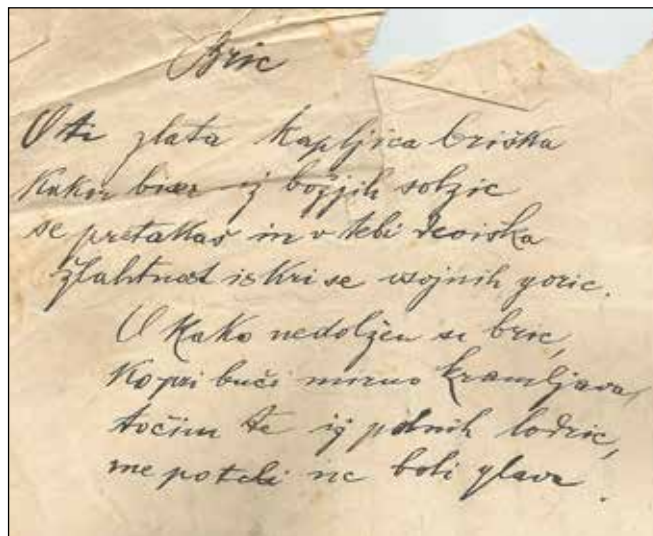 Bric
O ti zlata kapljica briška
Kakor biser iz božjih solzic
se pretakaš in v tebi deviška
žlahtnost iskri se vsojnih goric.
O Kako nedolžen si bric,
Ko pri buči mirno kramljava,
točim te iz polnih lodric,
me po tebi ne boli glava.